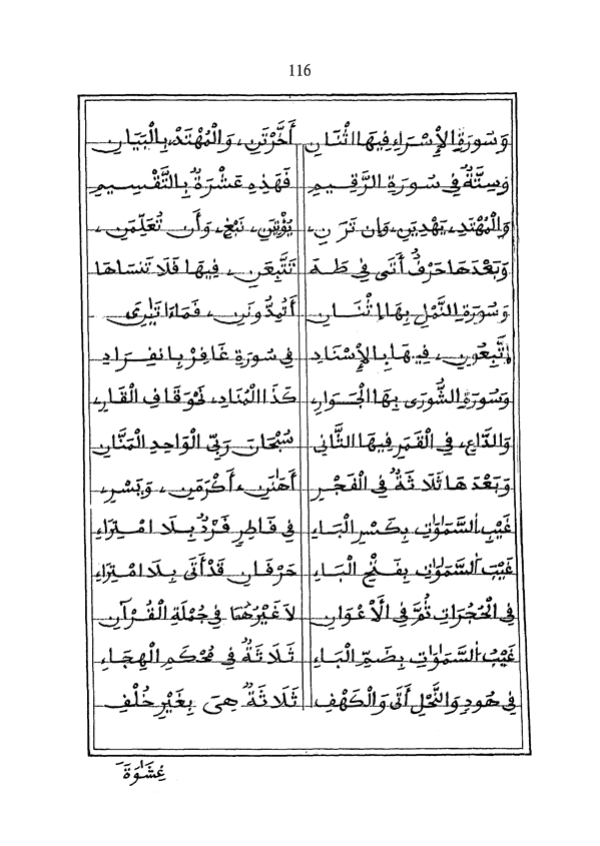 116
وَسُورَةِ الإِسْرَاءِ فِيهَا اثْنَانِ أَخَّرْتَنِ، وَالْمُهْتَدْ، بِالْبَيَانِ
وَسِتَّةٌ فِي سُورَةِ الرَّقِيمِ فَهَذِهِ عَشْرَةٌ بِالتَّقْسِيمِ
وَالْمُهْتَدِ، يَهْدِيَنِ، وَإِن تَرَنِ، يُوْتِيَنِ، نَبْغِ، وَأَن تُعَلِّمَنِ،
وَبَعْدَهَا حَرْفٌ أَتَى فِي طَهَ تَتَّبِعَنِ، فِيهَا فَلَا تَنسَاهَا
وَسُورَةِ النَّمْلِ بِهَا اثْنَانِ أَتُمِدُّونَنِ، فَمَاءَاتَيٰنِ
اتَّبِعُونِ، فِيهَا بِالإِسْنَادِ فِي سُورَةِ غَافِرْ بِانفِرَادِ
وَسُورَةِ الشُّورَى بِهَا الْجَوَارِ، كَذَا الْمُنَادِ، نَحْوَ قَافِ الْقَارِ،
وَالدَّاعِ، فِي الْقَمَرِ فِيهَا الثَّانِي سُبْحَانَ رَبِّي الْوَاحِدِ الْمَنَّانِ
وَبَعْدَهَا ثَلَاثَةٌ فِي الْفَجْرِ أَهَٰنَنِ، أَكْرَمَنِ، وَيَسْرِ،
غَيْبِ السَّمَٰوَٰتِ بِكَسْرِ الْبَاءِ فِي فَاطِرٍ فَرْدٌ بِلَا امْتِرَاءِ
غَيْبَ السَّمَٰوَٰتِ بِفَتْحِ الْبَاءِ حَرْفَانِ قَدْ أَتَى بِلَا امْتِرَاءِ
فِي الْحُجُرَاتِ ثُمَّ فِي الْأَعْوَانِ لَا غَيْرُهُمَا فِي جُمْلَةِ الْقُرْآنِ
غَيْبُ السَّمَٰوَٰتِ بِضَمِّ الْبَاءِ ثَلَاثَةٌ فِي مُحْكَمِ الْهِجَاءِ
فِي هُودِ وَالنَّحْلِ أَتَى وَالْكَهْفِ ثَلَاثَةٌ هِيَ بِغَيْرِ خُلْفِ
غِشَٰوَةً